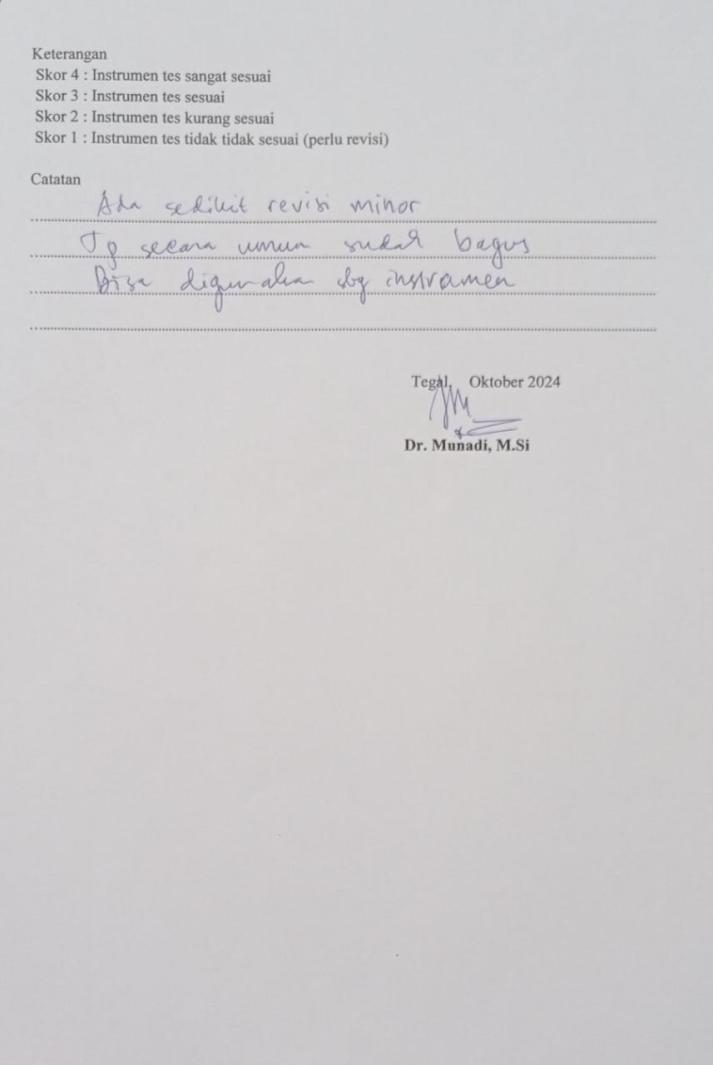 Keterangan
Skor 4 : Instrumen tes sangat sesuai
Skor 3 : Instrumen tes sesuai
Skor 2 : Instrumen tes kurang sesuai
Skor 1 : Instrumen tes tidak tidak sesuai (perlu revisi)
Catatan
Ada sedikit revisi minor
Tp secara umum sudah bagus
Bisa digunakan sbg instrumen
Tegal, Oktober 2024
Dr. Munadi, M.Si